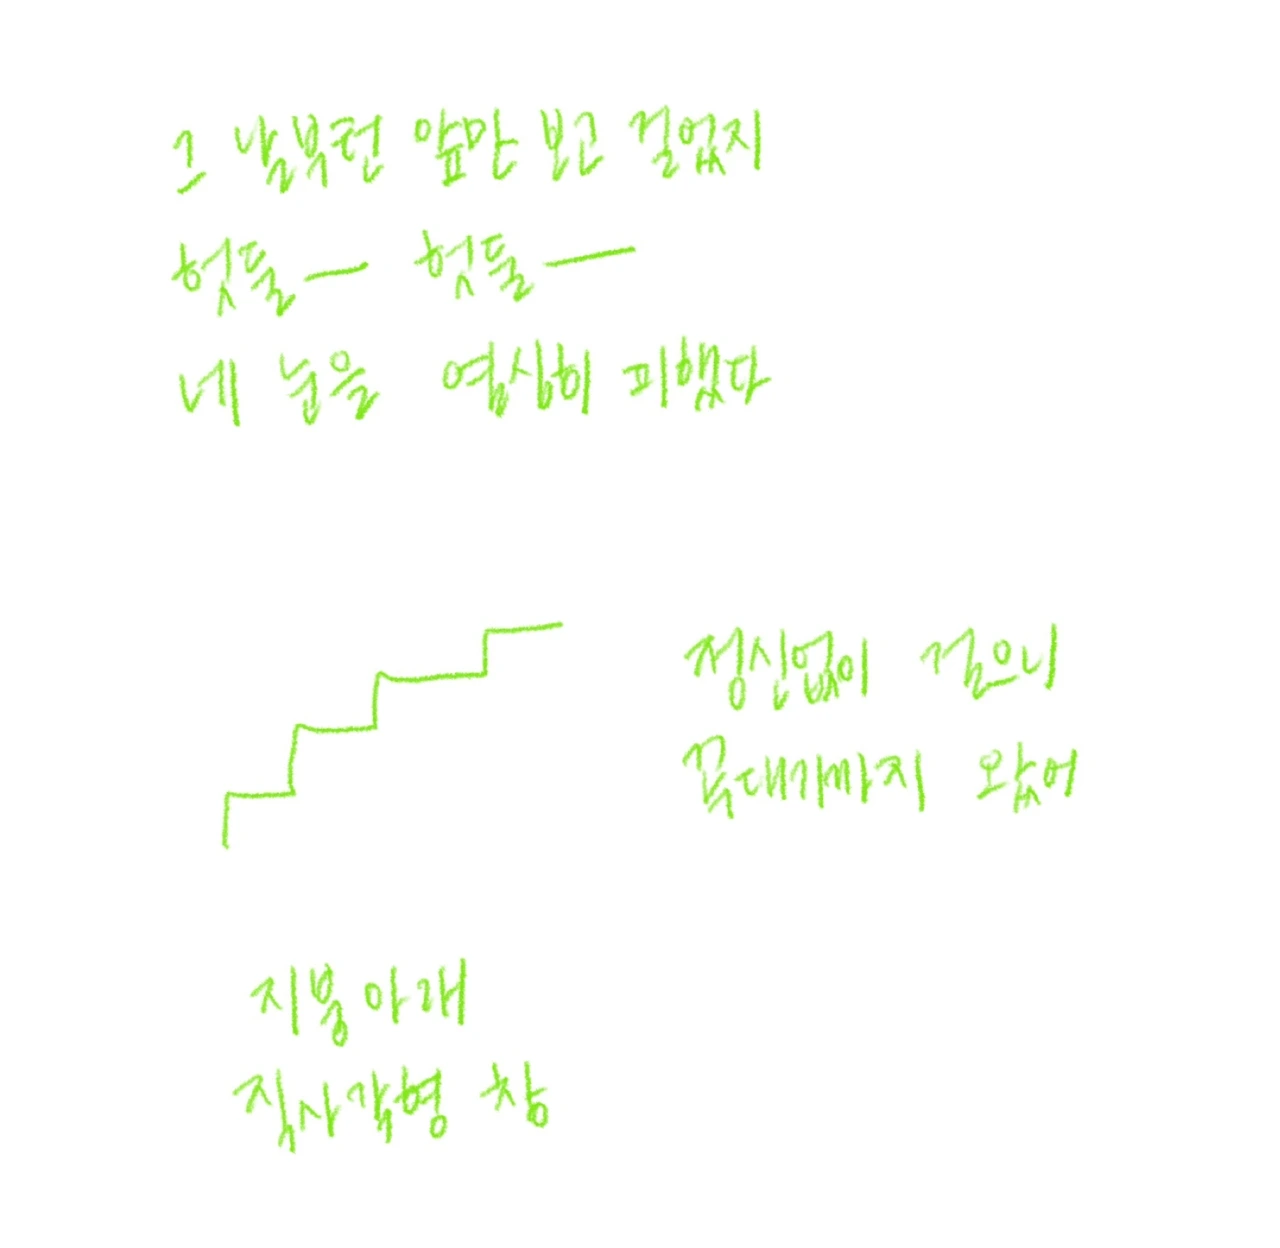 그 날부턴 앞만 보고 걸었지
헛둘— 헛둘—
네 눈을 열심히 피했다
정신없이 걸으니
꼭대기까지 왔어
지붕아래
직사각형 창